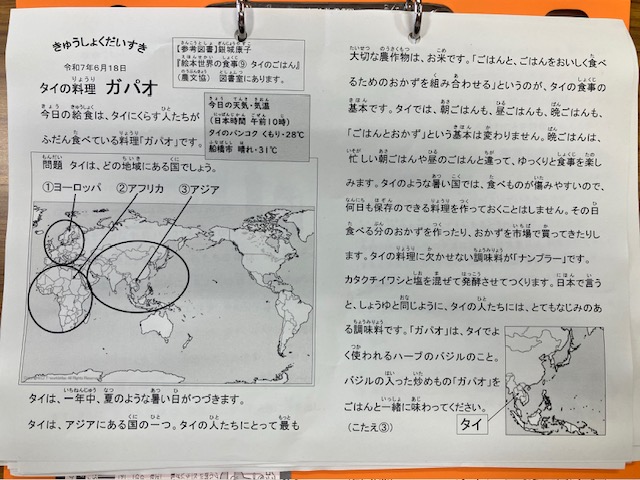 きゅうしょくだいすき
令和7年6月18日
タイの料理 ガパオ
【参考図書】銀城康子
『絵本世界の食事⑨ タイのごはん』
(農文協) 図書室にあります。
今日の給食は、タイにくらす人たちが
ふだん食べている料理「ガパオ」です。
今日の天気・気温
(日本時間 午前10時)
タイのバンコク くもり・28℃
船橋市 晴れ・31℃
問題 タイは、どの地域にある国でしょう。
①ヨーロッパ ②アフリカ ③アジア
タイは、一年中、夏のような暑い日がつづきます。
タイは、アジアにある国の一つ。タイの人たちにとって最も
大切な農作物は、お米です。「ごはんと、ごはんをおいしく食べ
るためのおかずを組み合わせる」というのが、タイの食事の
基本です。タイでは、朝ごはんも、昼ごはんも、晩ごはんも、
「ごはんとおかず」という基本は変わりません。晩ごはんは、
忙しい朝ごはんや昼のごはんと違って、ゆっくりと食事を楽し
みます。タイのような暑い国では、食べものが傷みやすいので、
何日も保存のできる料理を作っておくことはしません。その日
食べる分のおかずを作ったり、おかずを市場で買ってきたりし
ます。タイの料理に欠かせない調味料が「ナンプラー」です。
カタクチイワシと塩を混ぜて発酵させてつくります。日本で言う
と、しょうゆと同じように、タイの人たちには、とてもなじみのあ
る調味料です。「ガパオ」は、タイでよ
く使われるハーブのバジルのこと。
バジルの入った炒めもの「ガパオ」を
ごはんと一緒に味わってください。
(こたえ③)
タイ